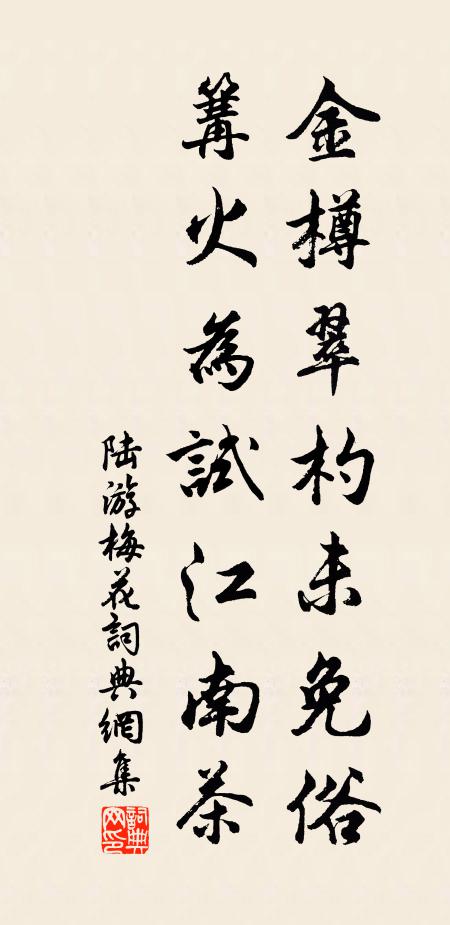 金樽翠杓未免俗
篝火為試江南茶
陸游梅花詞典網集
詞典网印